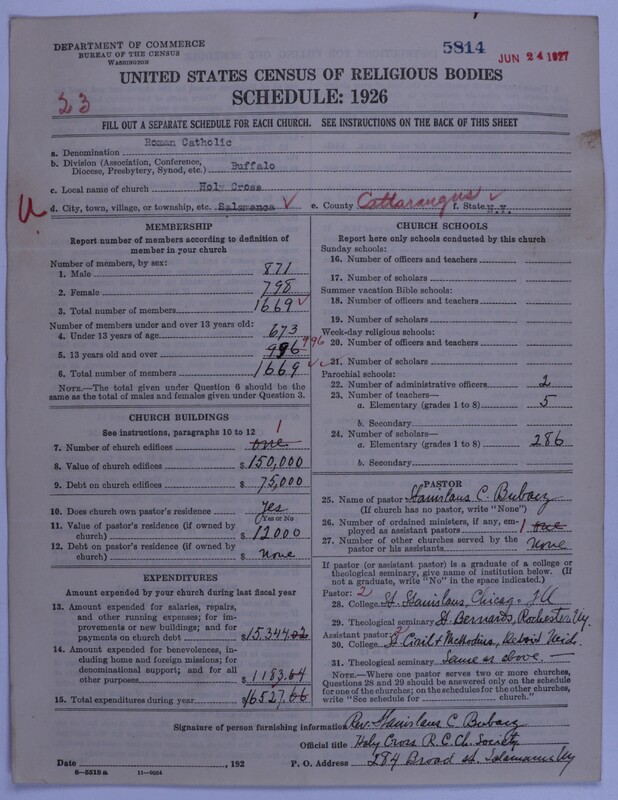 DEPARTMENT OF COMMERCE
BUREAU OF THE CENSUS
WASHINGTON
5814
JUN 24 1927
UNITED STATES CENSUS OF RELIGIOUS BODIES
SCHEDULE: 1926
23
FILL OUT A SEPARATE SCHEDULE FOR EACH CHURCH. SEE INSTRUCTIONS ON THE BACK OF THIS SHEET
a. Denomination Roman Catholic
b. Division (Association, Conference, Diocese, Presbytery, Synod, etc.) Buffalo
c. Local name of church Holy Cross
d. City, town, village, or township, etc. Salamanca e. County Cattaraugus f. State N.Y.
MEMBERSHIP
Report number of members according to definition of
member in your church
Number of members, by sex:
1. Male 871
2. Female 798
3. Total number of members 1669
Number of members under and over 13 years old:
4. Under 13 years of age 673
5. 13 years old and over 996 996
6. Total number of members 1669
NOTE.—The total given under Question 6 should be the
same as the total of males and females given under Question 3.
CHURCH BUILDINGS
See instructions, paragraphs 10 to 12
7. Number of church edifices one 1
8. Value of church edifices $ 150,000
9. Debt on church edifices $ 75,000
10. Does church own pastor's residence yes
(Yes or No)
11. Value of pastor's residence (if owned by
church) $ 12000
12. Debt on pastor's residence (if owned by
church) $ None
EXPENDITURES
Amount expended by your church during last fiscal year
13. Amount expended for salaries, repairs,
and other running expenses; for im-
provements or new buildings; and for
payments on church debt $15,344.02
14. Amount expended for benevolences, in-
cluding home and foreign missions; for
denominational support; and for all
other purposes $ 1183.64
15. Total expenditures during year $16527.66
CHURCH SCHOOLS
Report here only schools conducted by this church
Sunday schools:
16. Number of officers and teachers
17. Number of scholars
Summer vacation Bible schools:
18. Number of officers and teachers
19. Number of scholars
Week-day religious schools:
20. Number of officers and teachers
21. Number of scholars
Parochial schools:
22. Number of administrative officers 2
23. Number of teachers—
a. Elementary (grades 1 to 8) 5
b. Secondary
24. Number of scholars—
a. Elementary (grades 1 to 8) 286
b. Secondary
PASTOR
25. Name of pastor Stanislaus C. Bubacz
(If church has no pastor, write "None")
26. Number of ordained ministers, if any, em-
ployed as assistant pastors 1 one
27. Number of other churches served by the
pastor or his assistants None
If pastor (or assistant pastor) is a graduate of a college or
theological seminary, give name of institution below. (If
not a graduate, write "No" in the space indicated.)
Pastor: 2
28. College St. Stanislaus, Chicago, Ill
29. Theological seminary St. Bernards, Rochester Ny.
Assistant pastor:
30. College St Ciril & Methodius, Detroit Mich.
31. Theological seminary Same as above.
NOTE.—Where one pastor serves two or more churches,
Questions 28 and 29 should be answered only on the schedule
for one of the churches; on the schedules for the other churches,
write "See schedule for church."
Signature of person furnishing information Rev. Stanislaus C Bubacz
Official title Holy Cross R.C. Ch. Society
Date , 192 P. O. Address 284 Broad st. Salamanca Ny
8—5518 a 11—9054